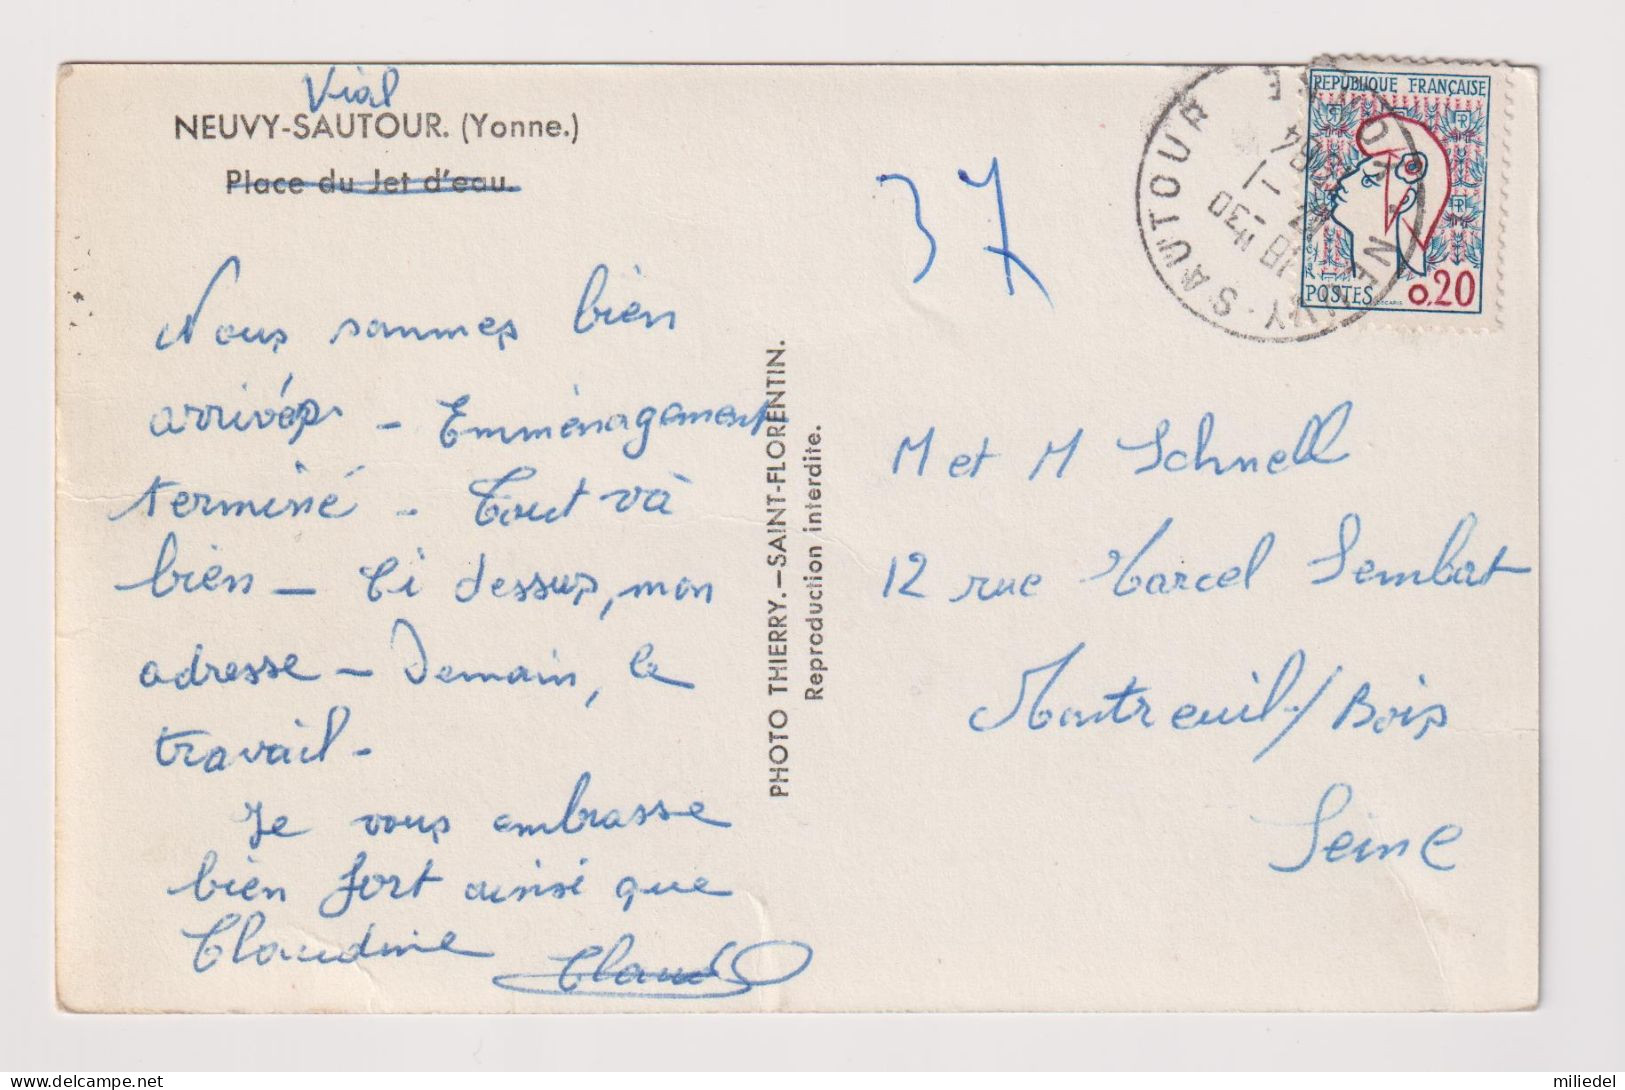 Vial
NEUVY-SAUTOUR. (Yonne.)
Place du Jet d'eau.
Nous sommes bien
arrivés - Emménagement
terminé - Tout và
bien - Ci dessus, mon
adresse - Demain, le
travail -
Je vous embrasse
bien fort ainsi que
Claudine
Claude
PHOTO THIERRY.-SAINT-FLORENTIN.
Reproduction interdite.
37
NEUVY-SAUTOUR
YONNE
18 H 30
REPUBLIQUE FRANÇAISE
POSTES 0,20
DECARIS
M et M Schnell
12 rue Marcel Sembat
Montreuil / Bois
Seine
miliedel